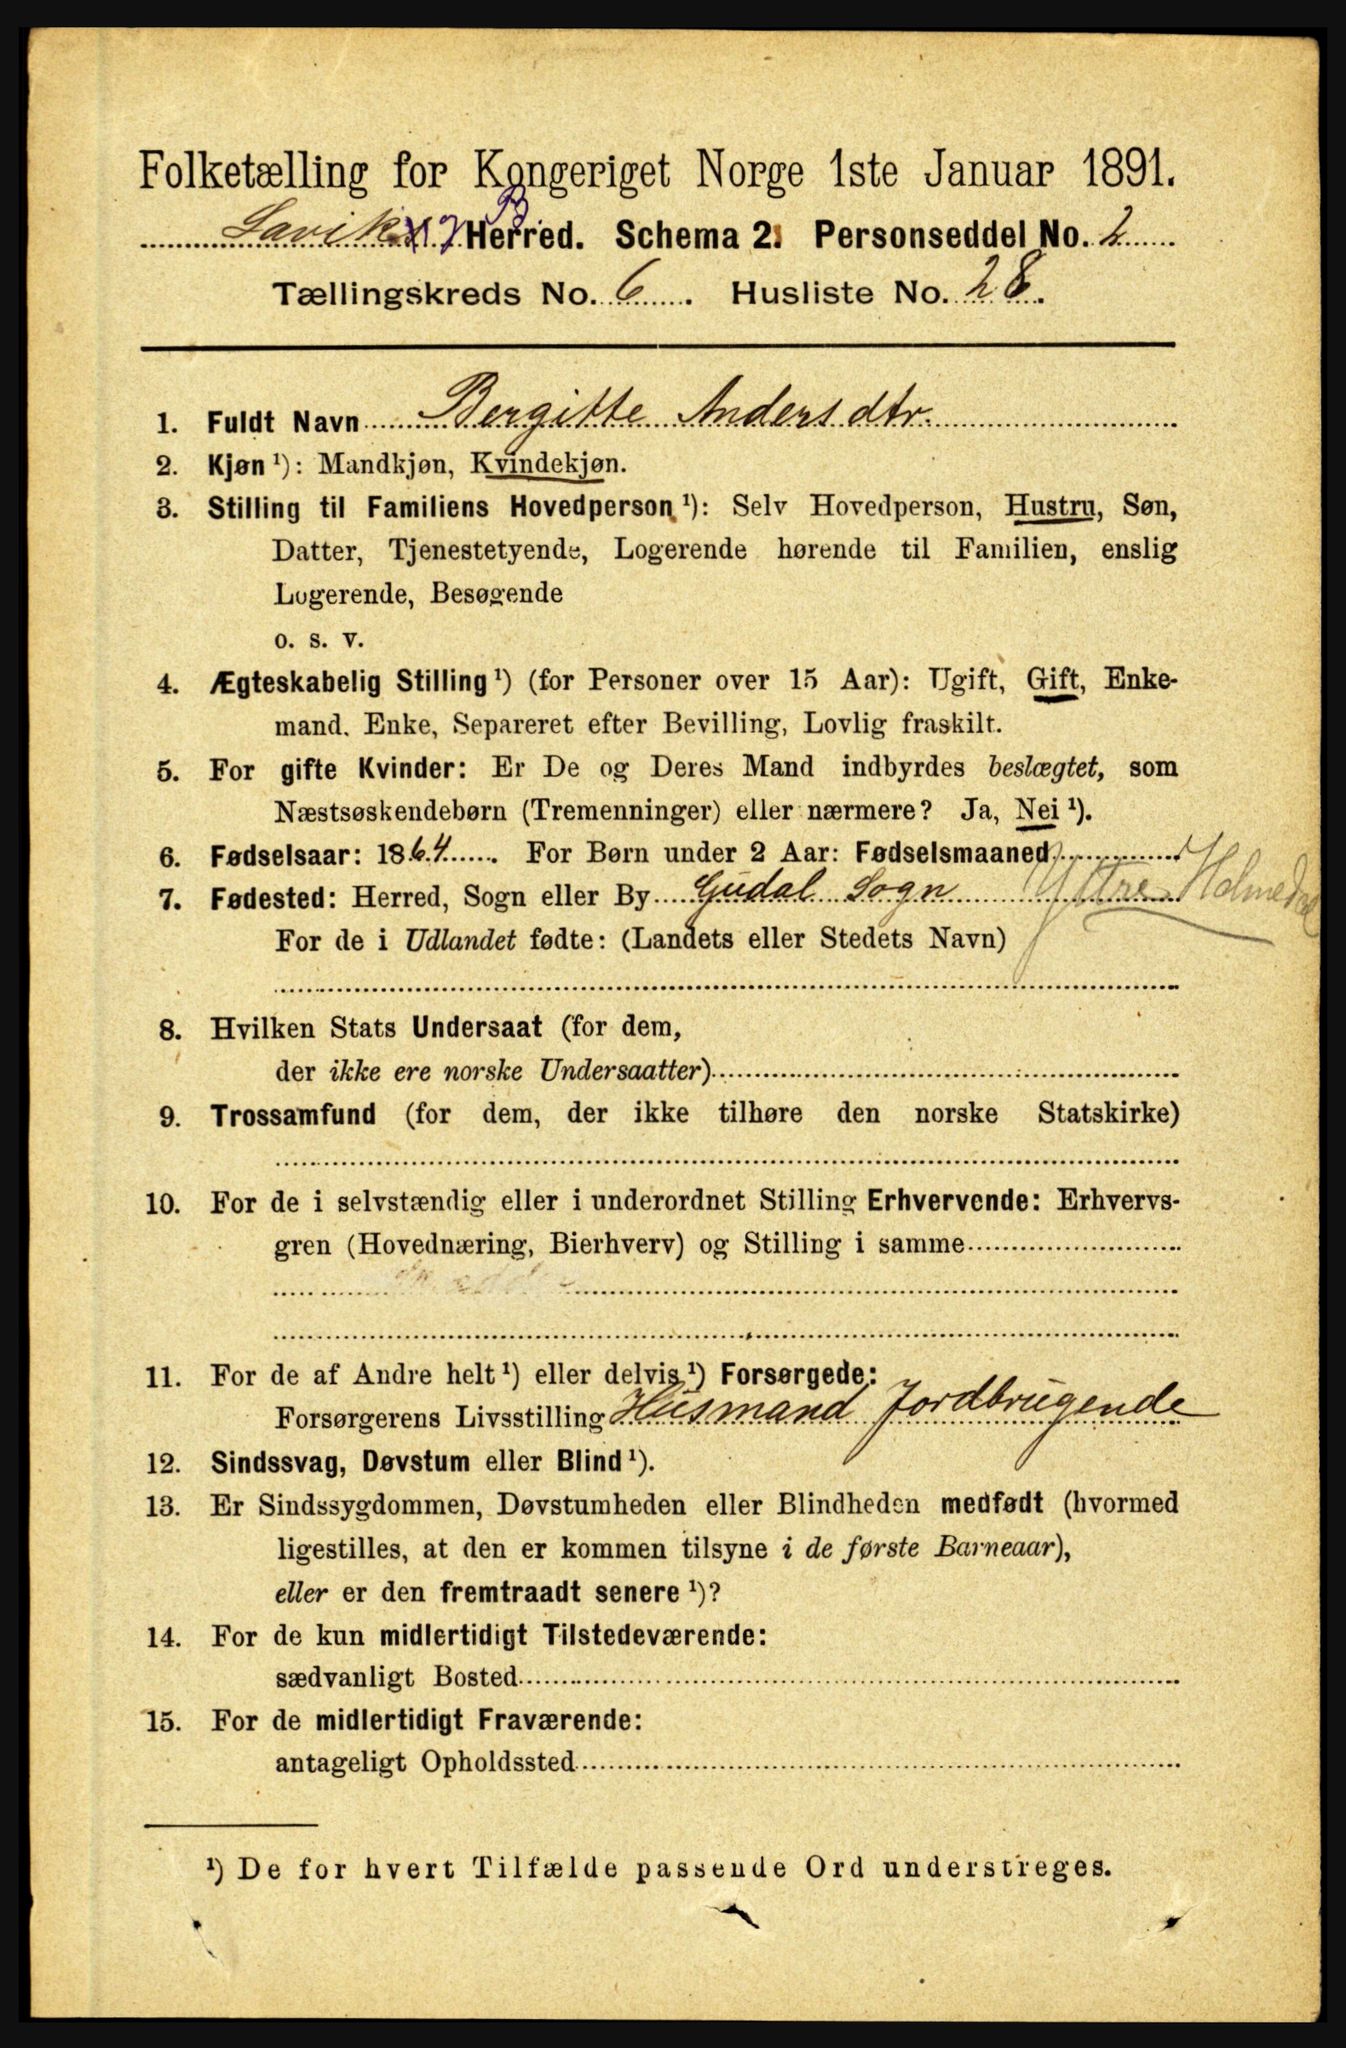 Folketælling for Kongeriget Norge 1ste Januar 1891.
Lavik B Herred. Schema 2. Personseddel No. 2
Tællingskreds No. 6. Husliste No. 28.
1. Fuldt Navn Bergitte Andersdtr.
2. Kjøn ¹): Mandkjøn, Kvindekjøn.
3. Stilling til Familiens Hovedperson ¹): Selv Hovedperson, Hustru, Søn,
Datter, Tjenestetyende, Logerende hørende til Familien, enslig
Logerende, Besøgende
o. s. v.
4. Ægteskabelig Stilling ¹) (for Personer over 15 Aar): Ugift, Gift, Enke-
mand, Enke, Separeret efter Bevilling, Lovlig fraskilt.
5. For gifte Kvinder: Er De og Deres Mand indbyrdes beslægtet, som
Næstsøskendebørn (Tremenninger) eller nærmere? Ja, Nei ¹).
6. Fødselsaar: 1864. For Børn under 2 Aar: Fødselsmaaned
7. Fødested: Herred, Sogn eller By Gudal Sogn Yttre Holmedal
For de i Udlandet fødte: (Landets eller Stedets Navn)
8. Hvilken Stats Undersaat (for dem,
der ikke ere norske Undersaatter)
9. Trossamfund (for dem, der ikke tilhøre den norske Statskirke)
10. For de i selvstændig eller i underordnet Stilling Erhvervende: Erhvervs-
gren (Hovednæring, Bierhverv) og Stilling i samme
11. For de af Andre helt ¹) eller delvis ¹) Forsørgede:
Forsørgerens Livsstilling Husmand Jordbrugende
12. Sindssvag, Døvstum eller Blind ¹).
13. Er Sindssygdommen, Døvstumheden eller Blindheden medfødt (hvormed
ligestilles, at den er kommen tilsyne i de første Barneaar),
eller er den fremtraadt senere ¹)?
14. For de kun midlertidigt Tilstedeværende:
sædvanligt Bosted
15. For de midlertidigt Fraværende:
antageligt Opholdssted
¹) De for hvert Tilfælde passende Ord understreges.